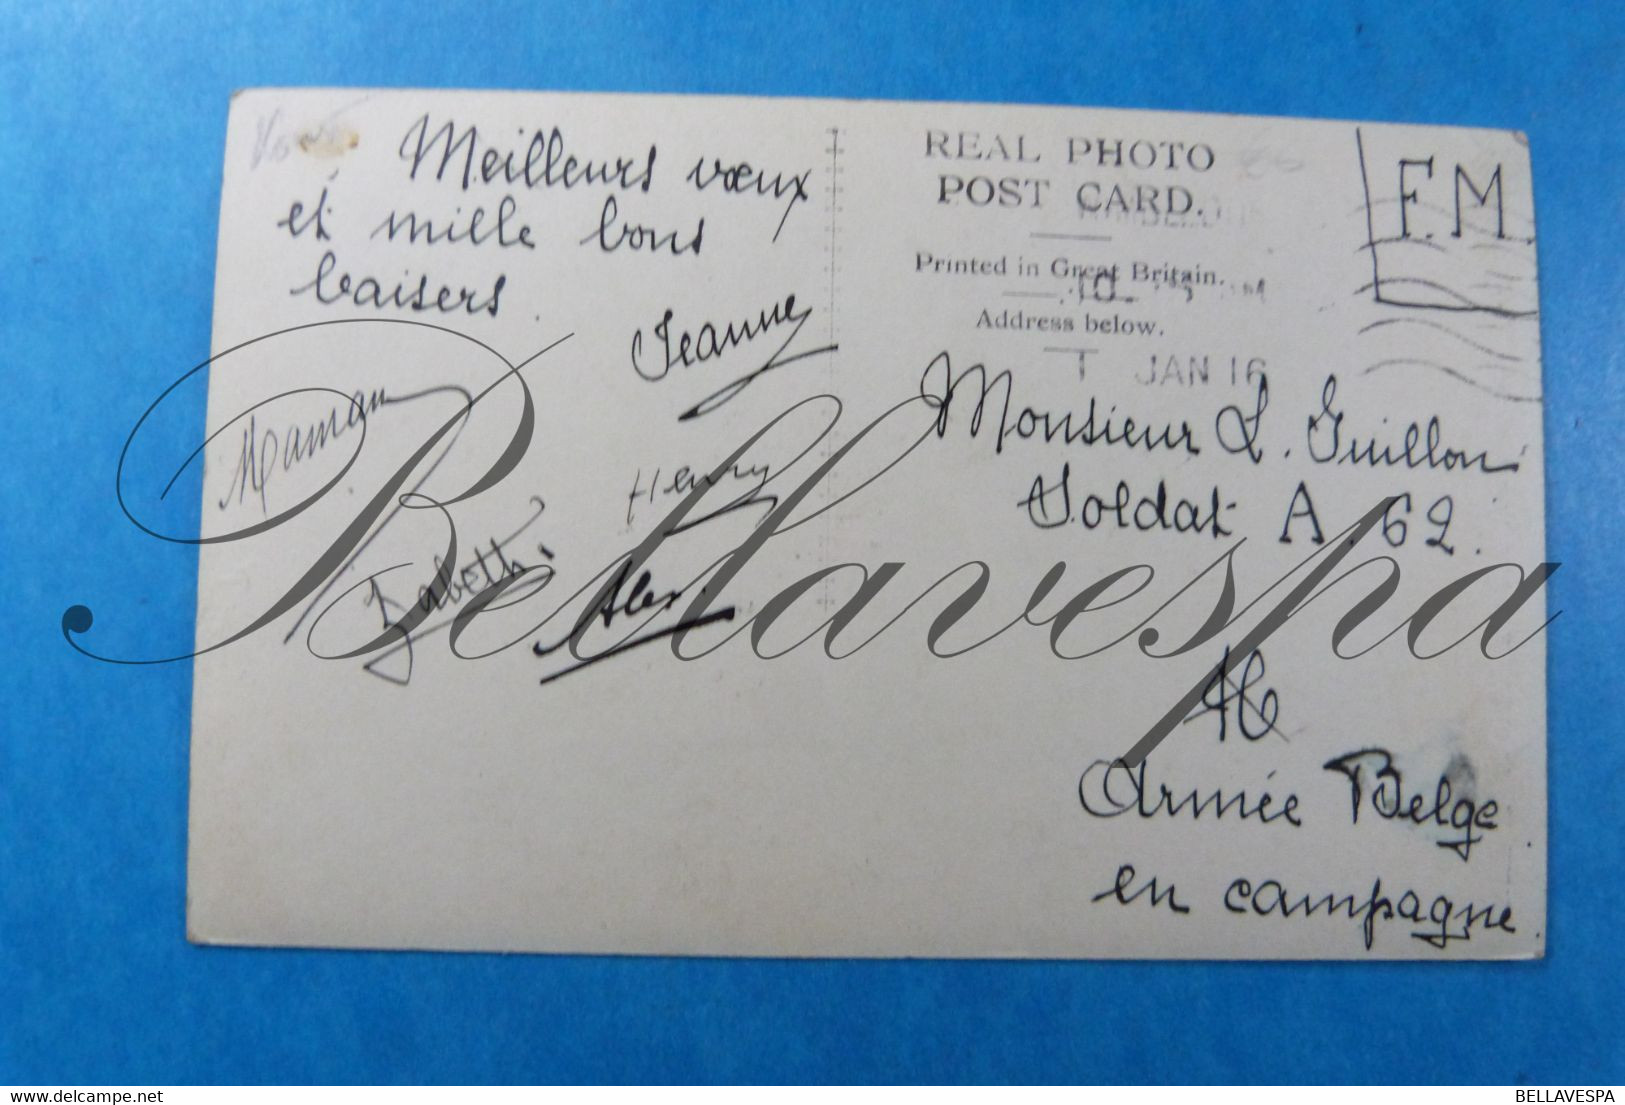 Meilleurs vœux
et mille bons
baisers.
Jeanne
Maman
Henry
Zabeth
Alex.
REAL PHOTO
POST CARD.
Printed in Great Britain.
Address below.
1 JAN 16
F.M.
Monsieur L. Guillon
Soldat A. 62.
Armée Belge
en campagne.
Bellavespa
delcampe.net
BELLAVESPA